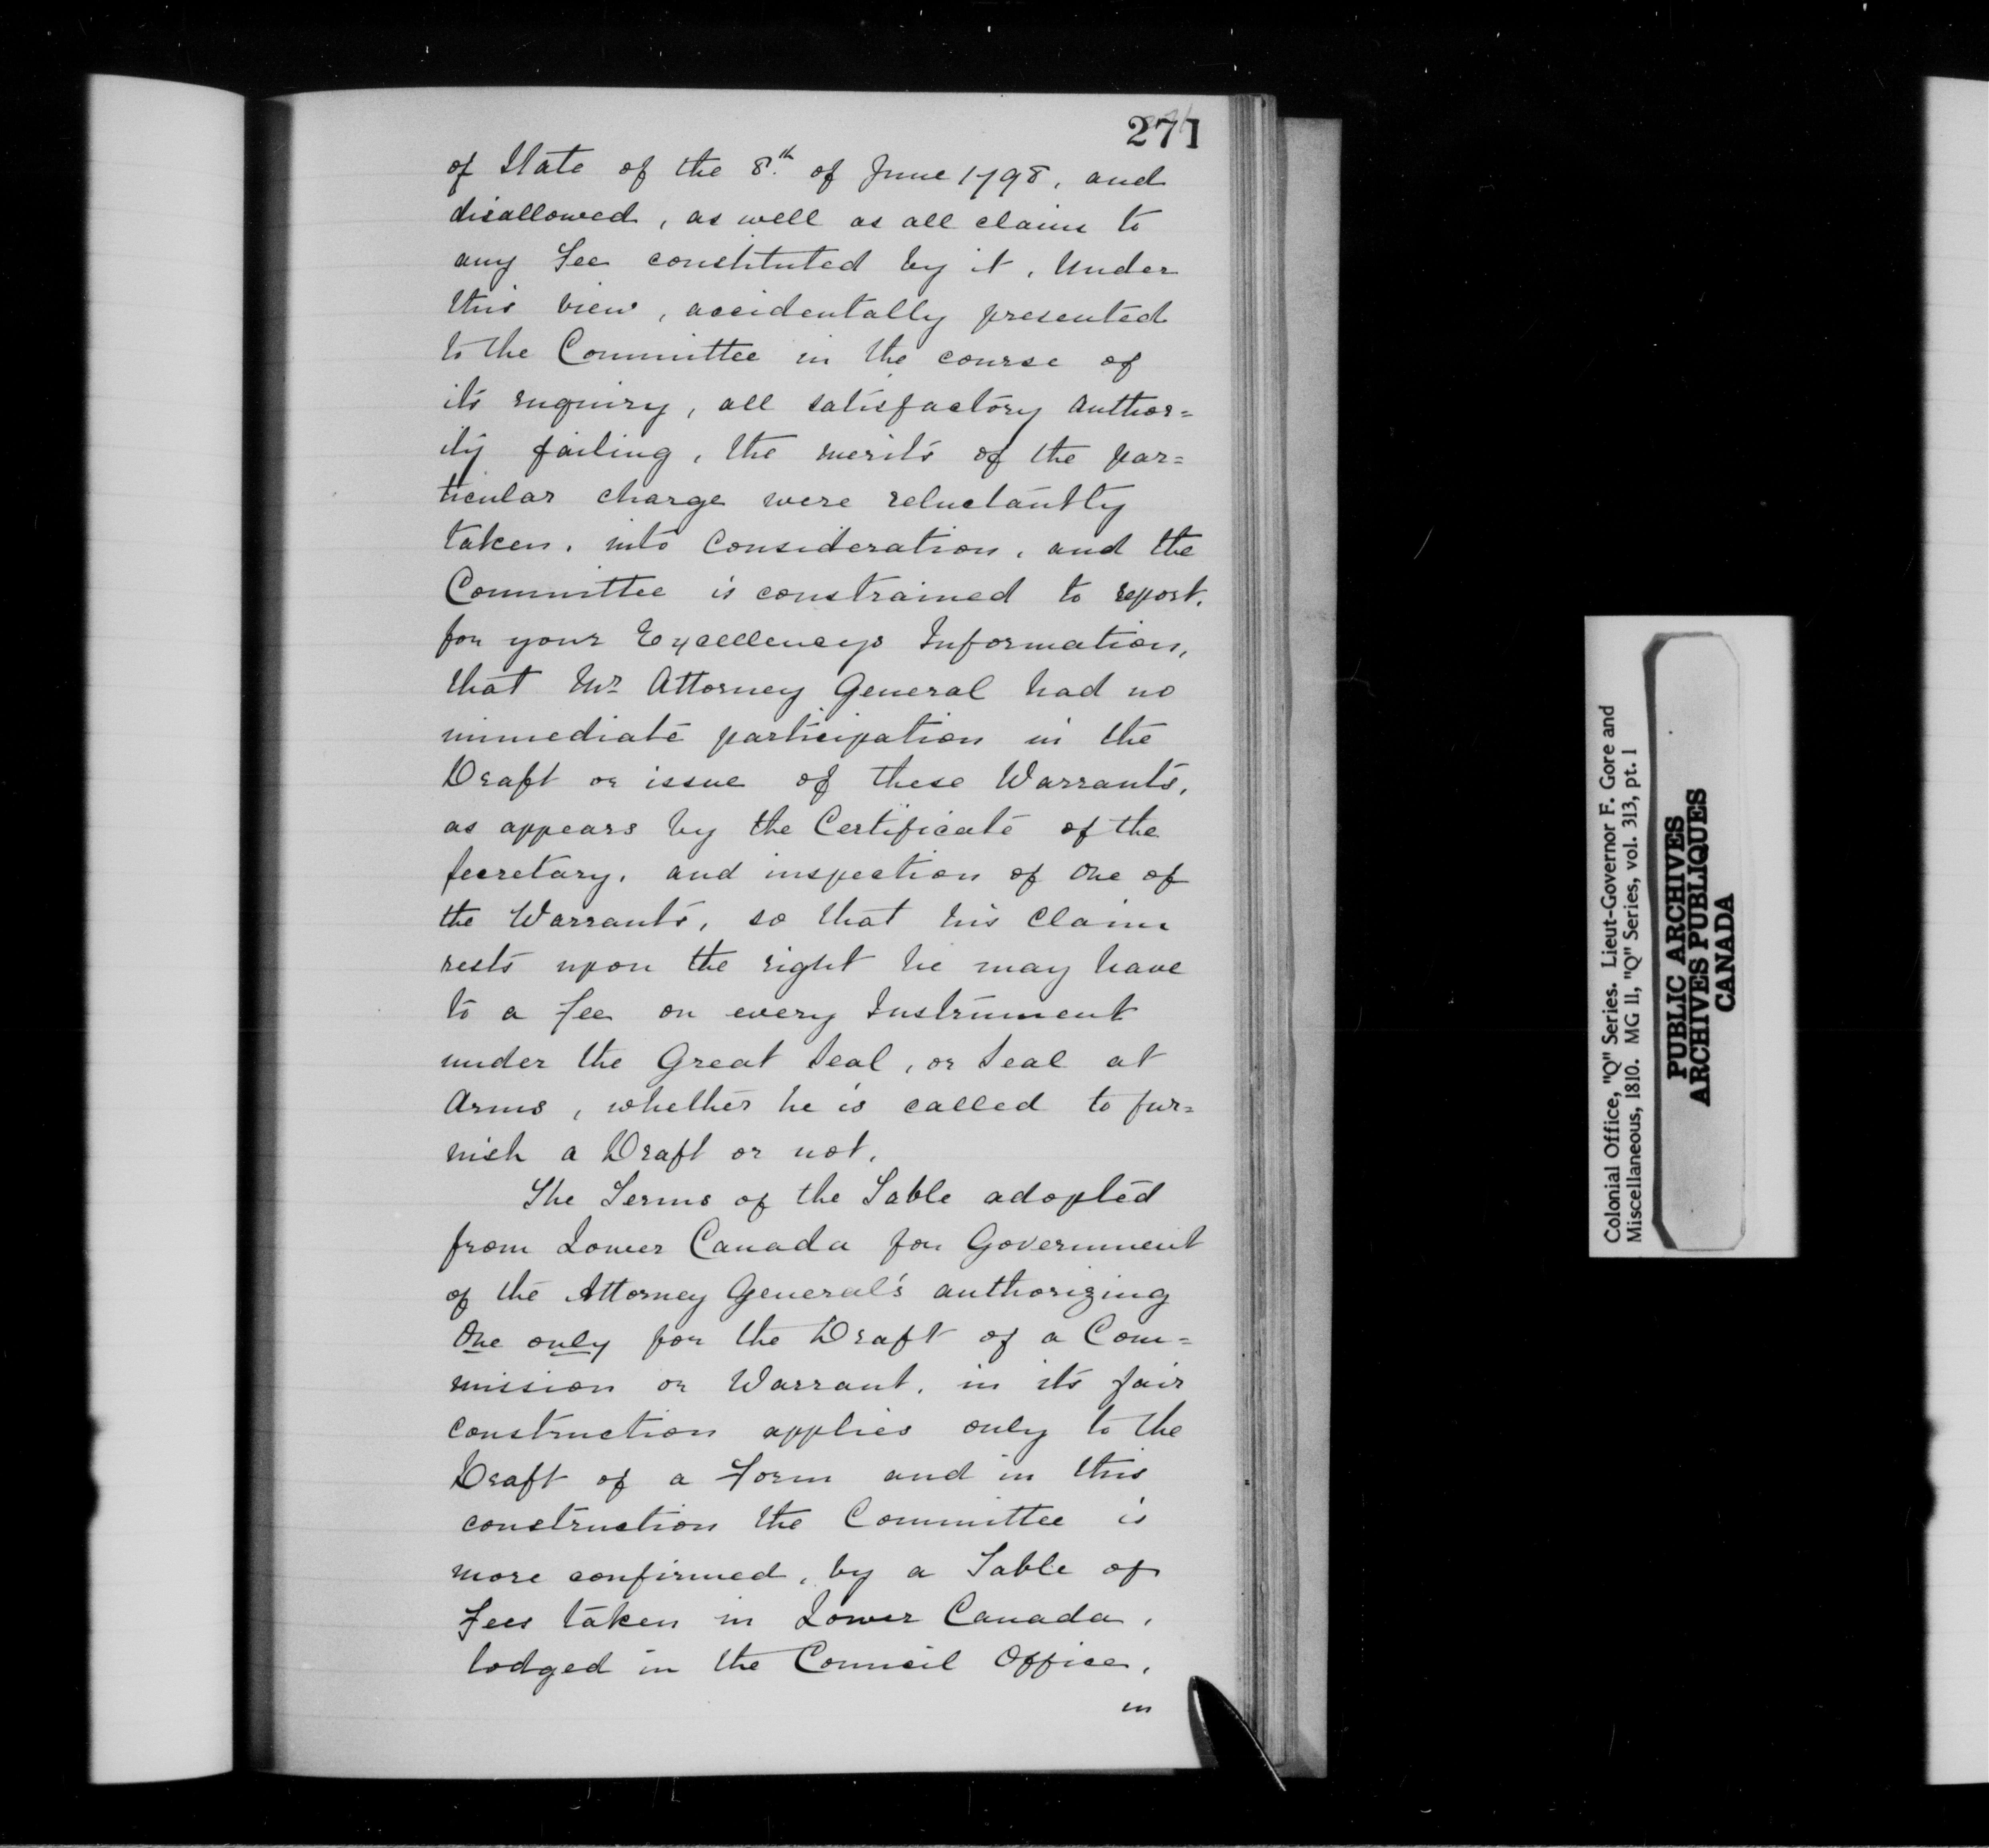 271
of State of the 8th. of June 1798, and
disallowed, as well as all claim to
any Fee constituted by it, Under
this view, accidentally presented
to the Committee in the course of
its enquiry, all satisfactory Author=
ity failing, the merits of the par=
ticular charge were reluctantly
taken, into Consideration, and the
Committee is constrained to report,
for your Excellencys Information,
that Mr Attorney General had no
immediate participation in the
Draft or issue of these Warrants,
as appears by the Certificate of the
Secretary, and inspection of One of
the Warrants, so that his Claim
rests upon the right he may have
to a Fee on every Instrument
under the Great Seal, or Seal at
Arms, whether he is called to fur=
nish a Draft or not.
The Terms of the Table adopted
from Lower Canada for Government
of the Attorney General's authorizing
One only for the Draft of a Com=
mission or Warrant, in its fair
construction applies only to the
Draft of a Form and in this
construction the Committee is
more confirmed, by a Table of
Fees taken in Lower Canada,
lodged in the Council Office,
in
Colonial Office, "Q" Series. Lieut-Governor F. Gore and
Miscellaneous, 1810. MG 11, "Q" Series, vol. 313, pt. 1
PUBLIC ARCHIVES
ARCHIVES PUBLIQUES
CANADA